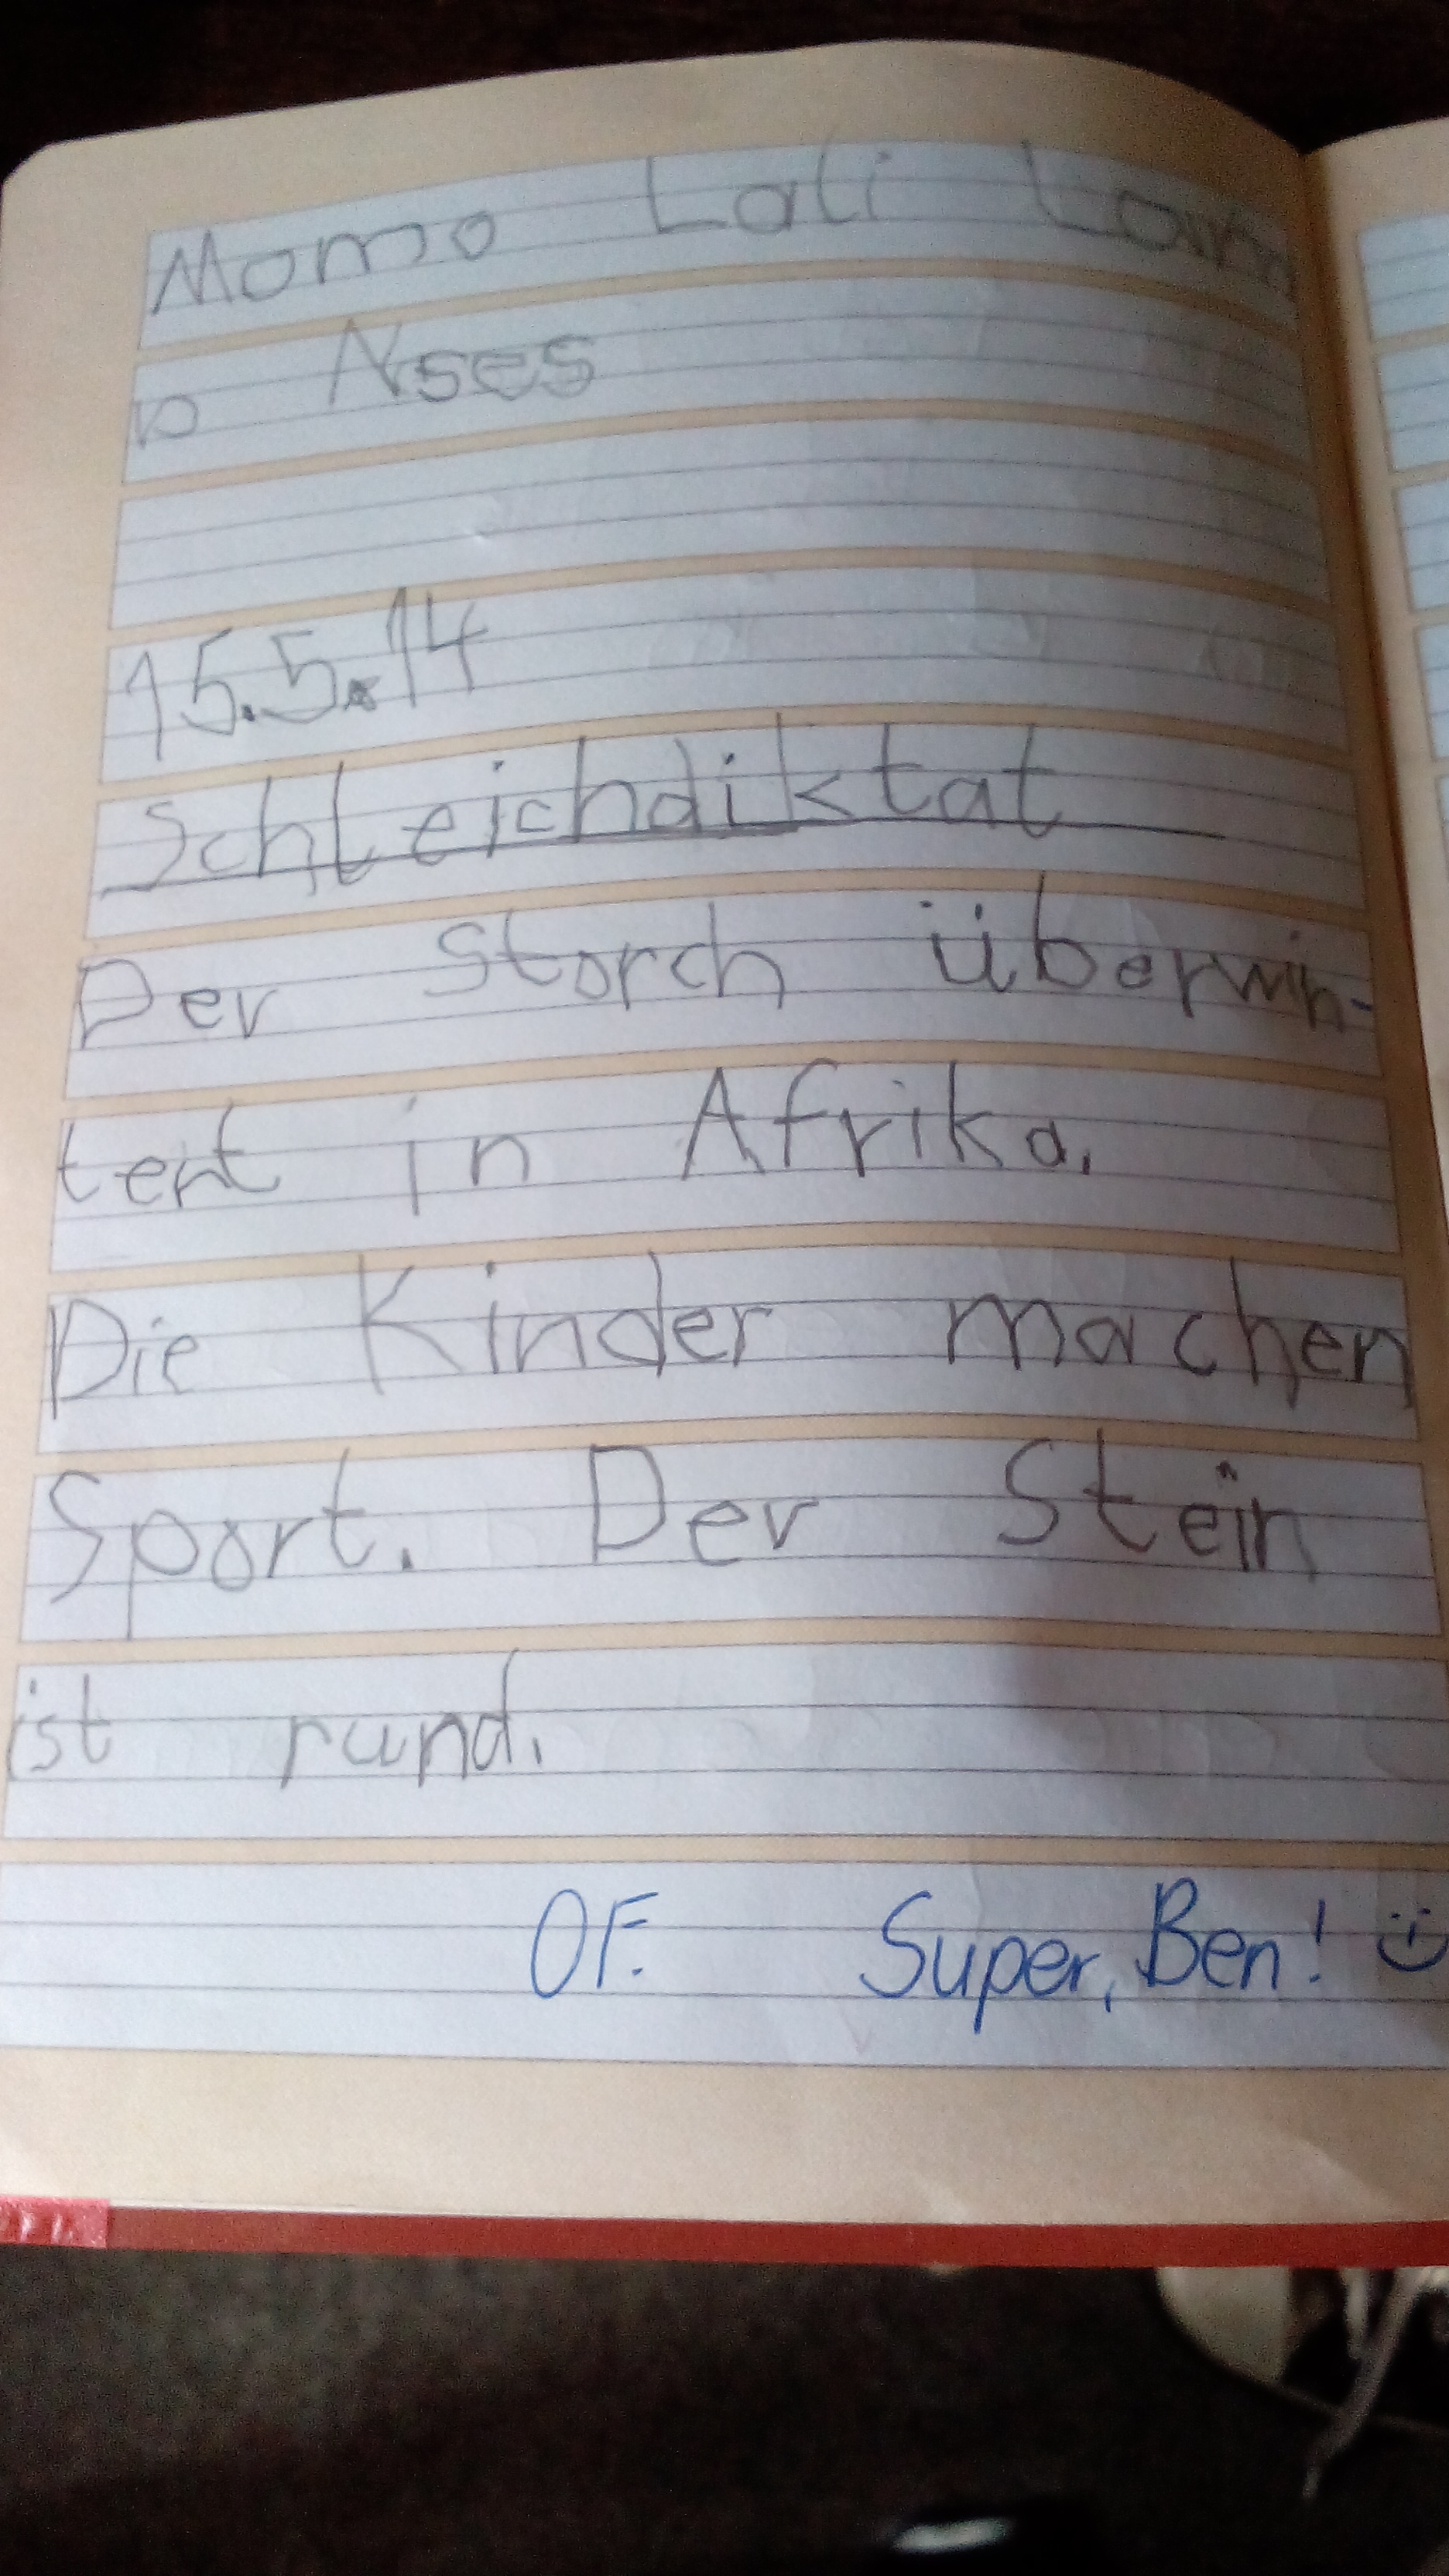 Momo Lali Lam
o Nses
15.5.14
Schleichdiktat
Der Storch überwin-
tert in Afrika.
Die Kinder machen
Sport. Der Stein
ist rund.
OF. Super, Ben! :)